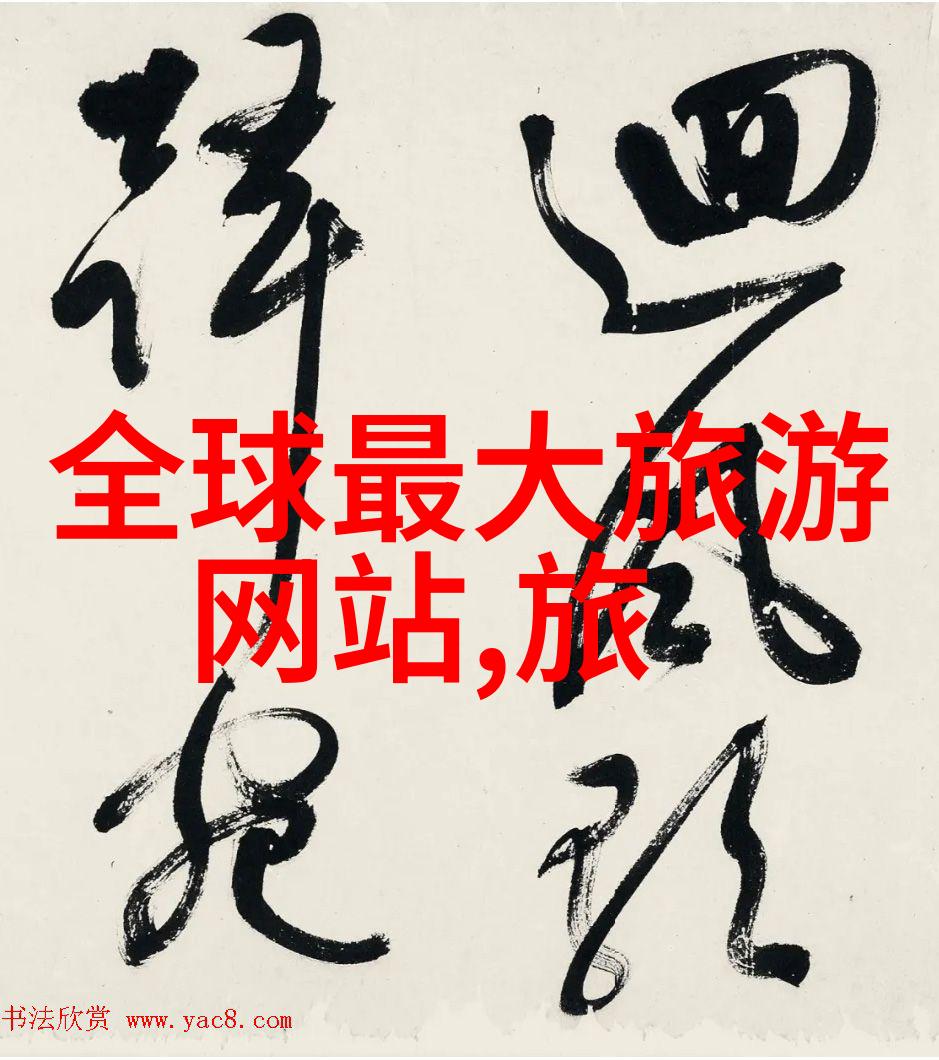 迴風
全球最大旅游
网站,旅
书法欣赏 www.yac8.com